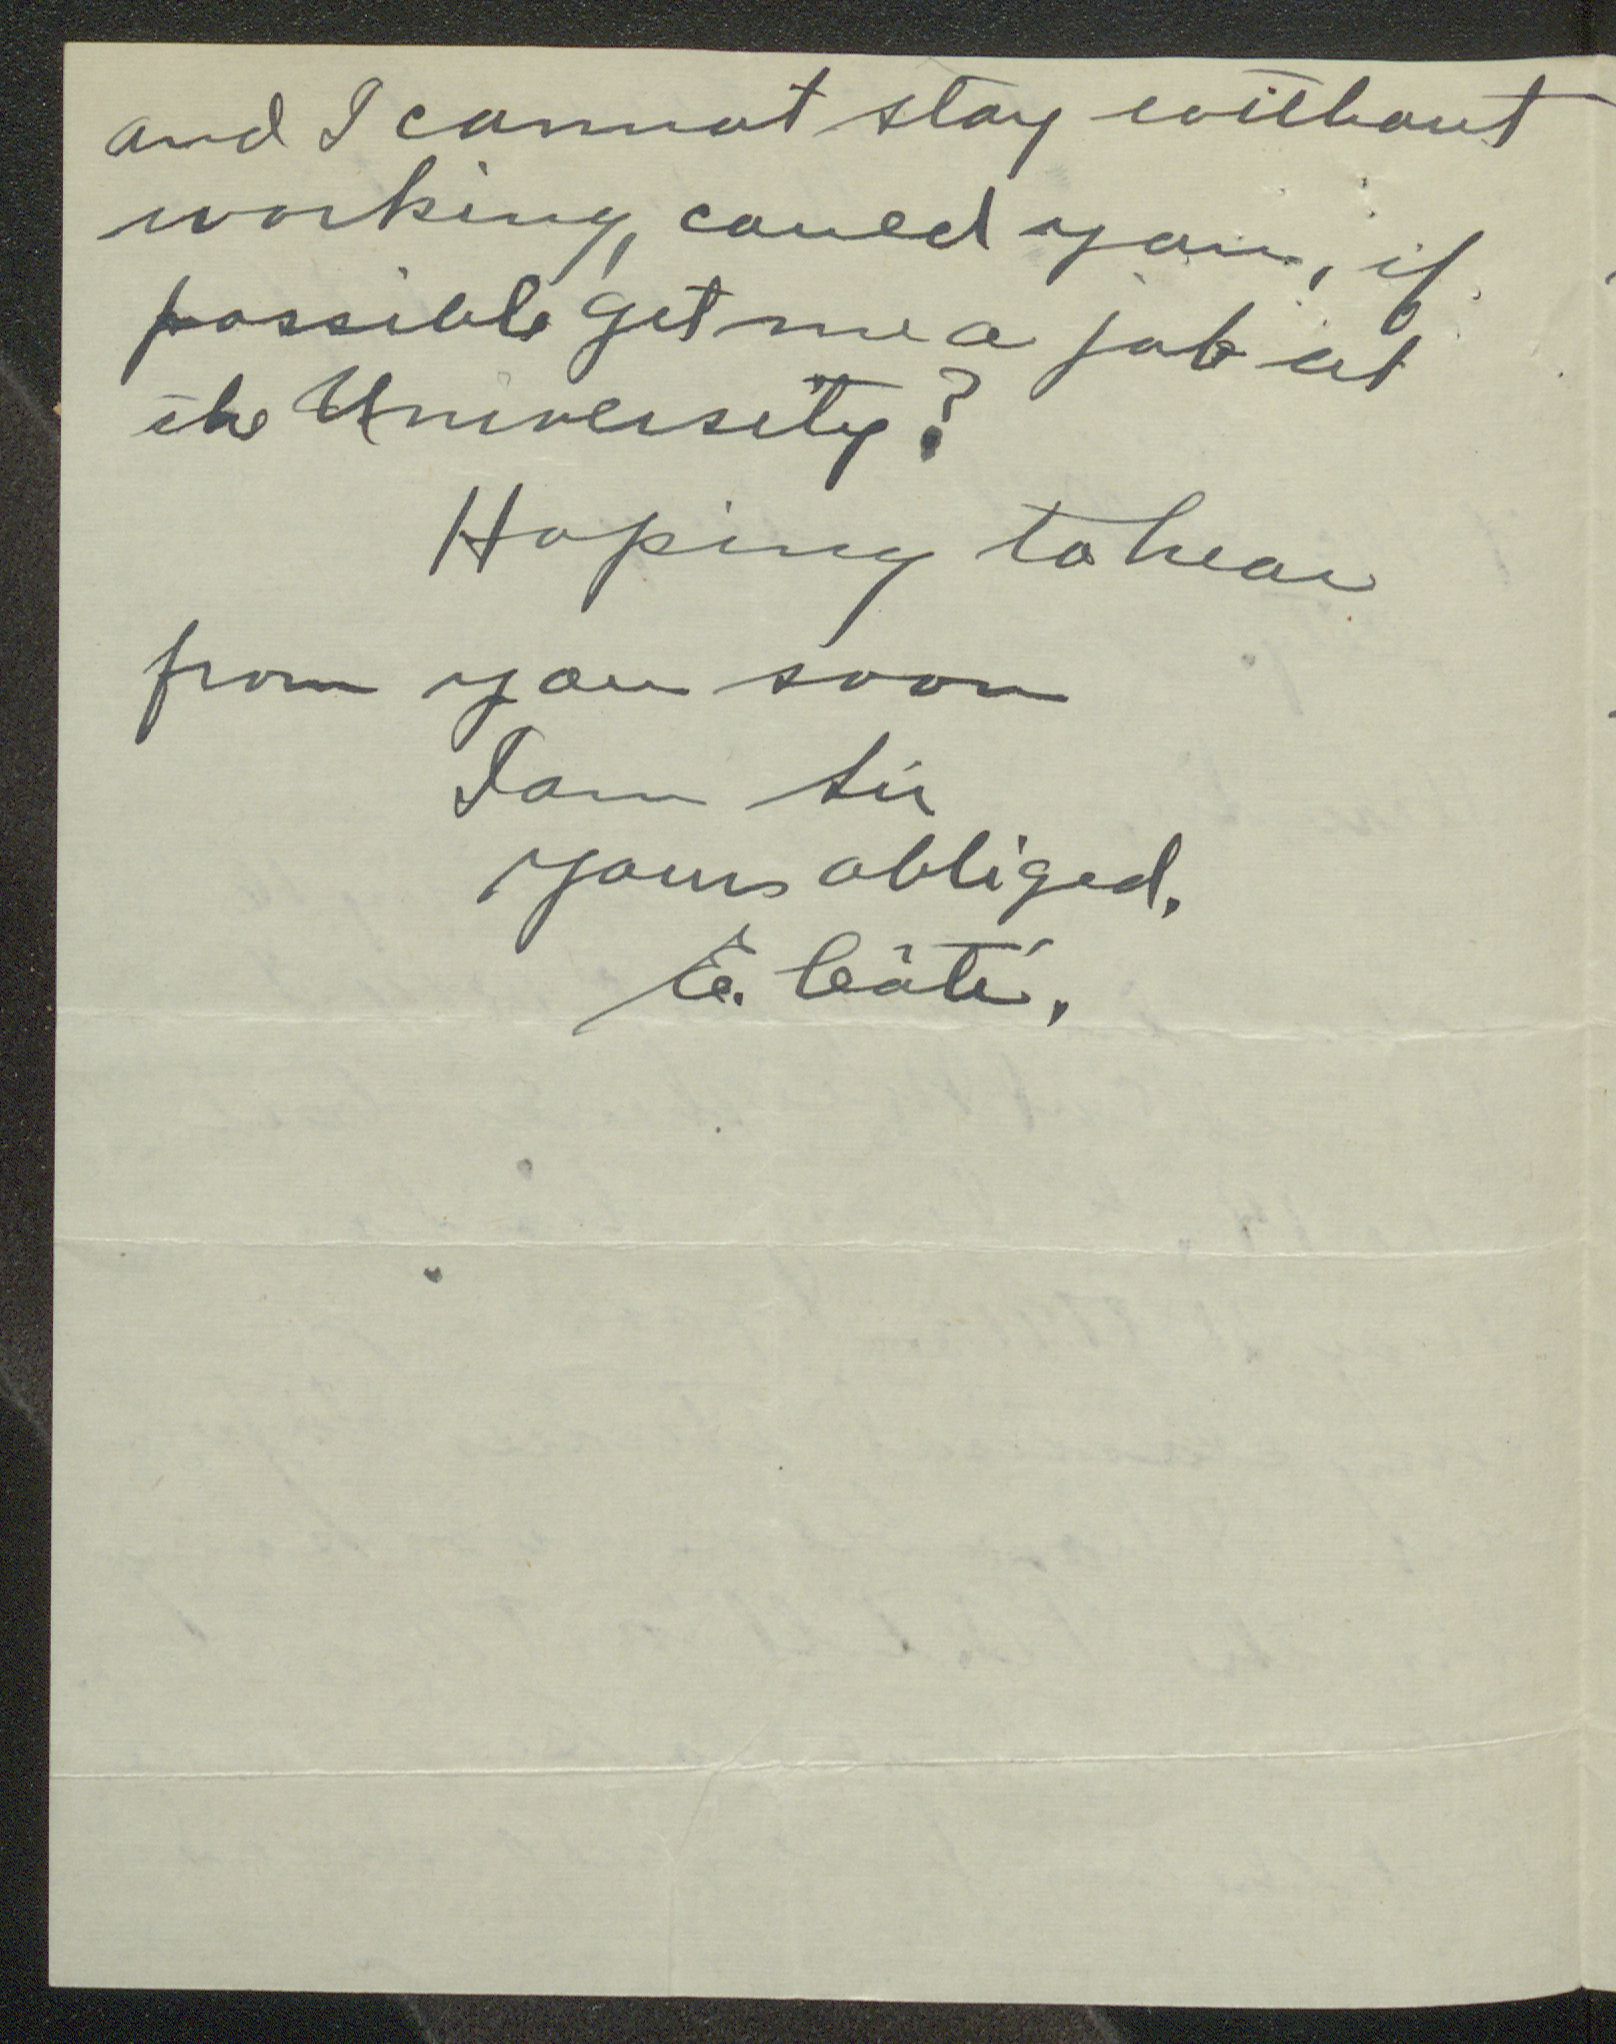 and I cannot stay without
working, could you, if
possible get me a job at
the University?
Hoping to hear
from you soon
I am sir
yours obliged.
E. Côté.